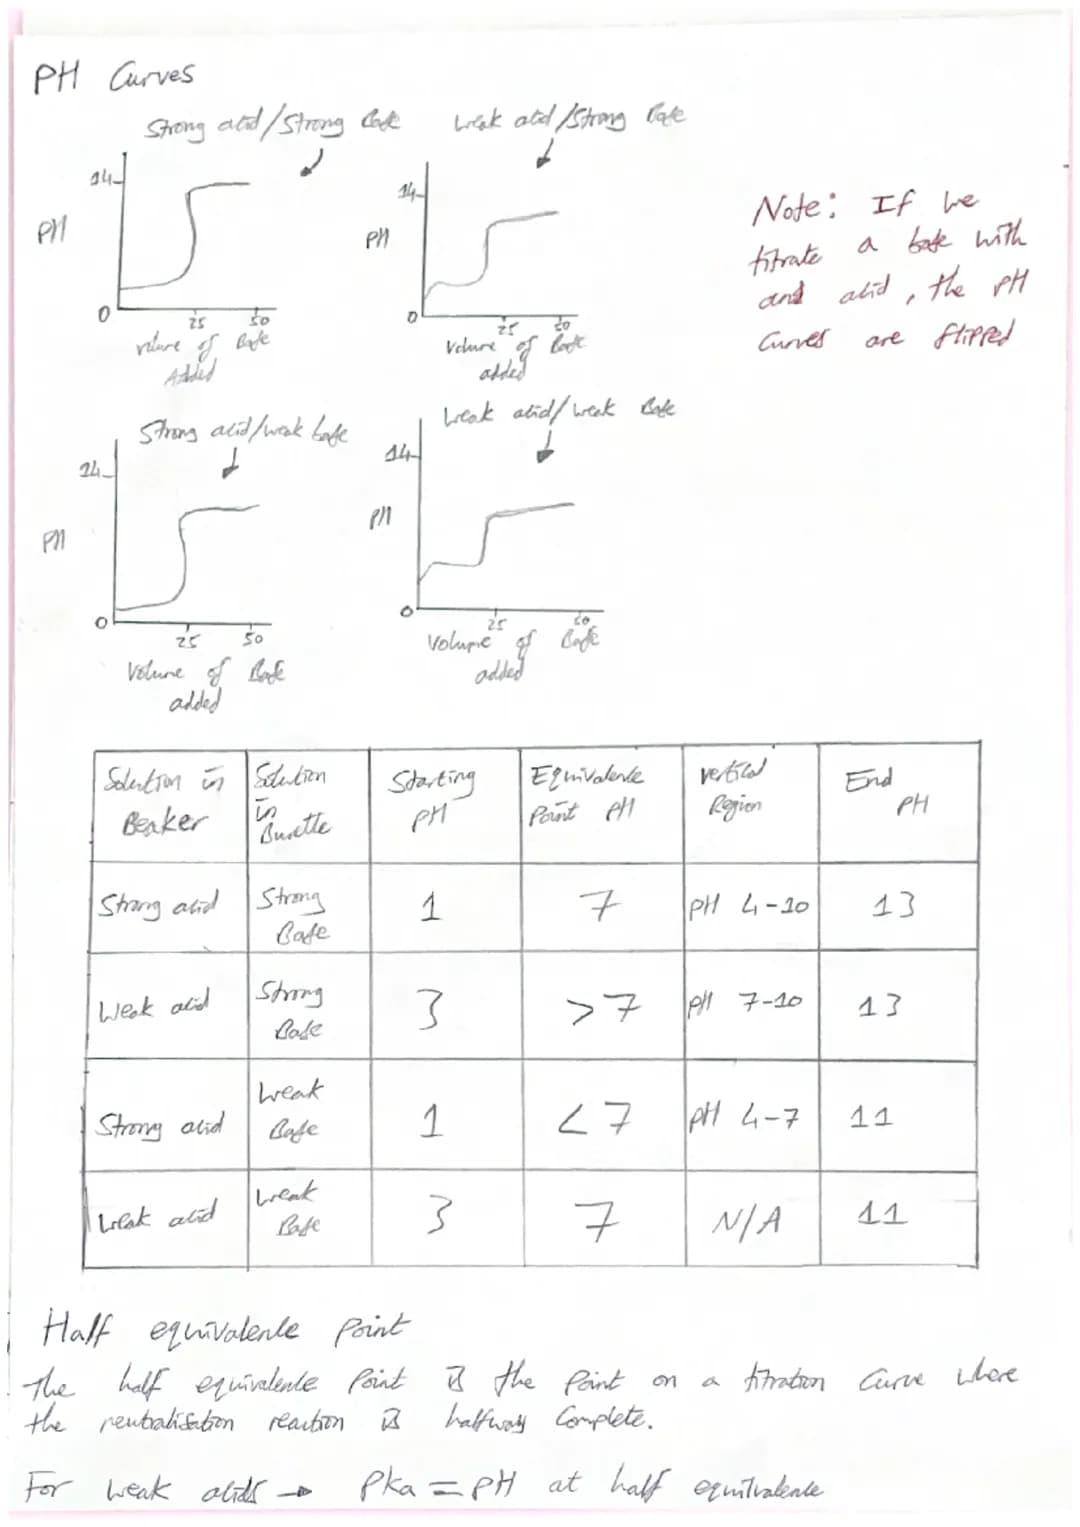 PH Curves
Strong acid/Strong Base
Weak acid/Strong Base
14
PH
0
25
50
volume of Base
Added
14
PH
0
25
50
Volume of Base
added
Note: If we
titrate a base with
and acid, the PH
Curves are flipped
Strong acid/weak base
14
PH
0
25
50
Volume of Base
added
Weak acid/weak Base
14
PH
0
25
50
Volume of Base
added
Solution in Beaker
Solution in Burette
Starting PH
Equivalence Point PH
vertical Region
End PH
Strong acid
Strong Base
1
7
PH 4-10
13
Weak acid
Strong Base
3
>7
PH 7-10
13
Strong acid
Weak Base
1
<7
PH 4-7
11
Weak acid
Weak Base
3
7
N/A
11
Half equivalence Point
The half equivalence Point is the Point on a titration Curve where
the neutralisation reaction is halfway Complete.
For weak acids → Pka = PH at half equivalence